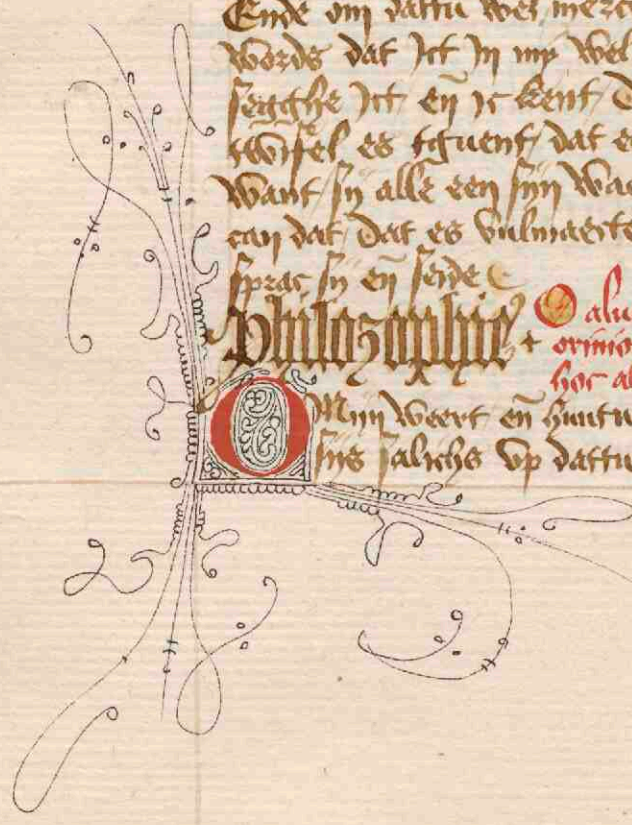 Ende om dattu wes merc
words dat Ict In mÿ wel
segghe Ict eñ ic kent / D
twifel es tguent / dat e
Want / sÿ alle een sijn wa
can dat / Dat es vulmaecte
sprac sÿ eñ seide
philozophie
O alu
orinio
hoc al
O Mijn weert eñ
sijs salichs vp dattu